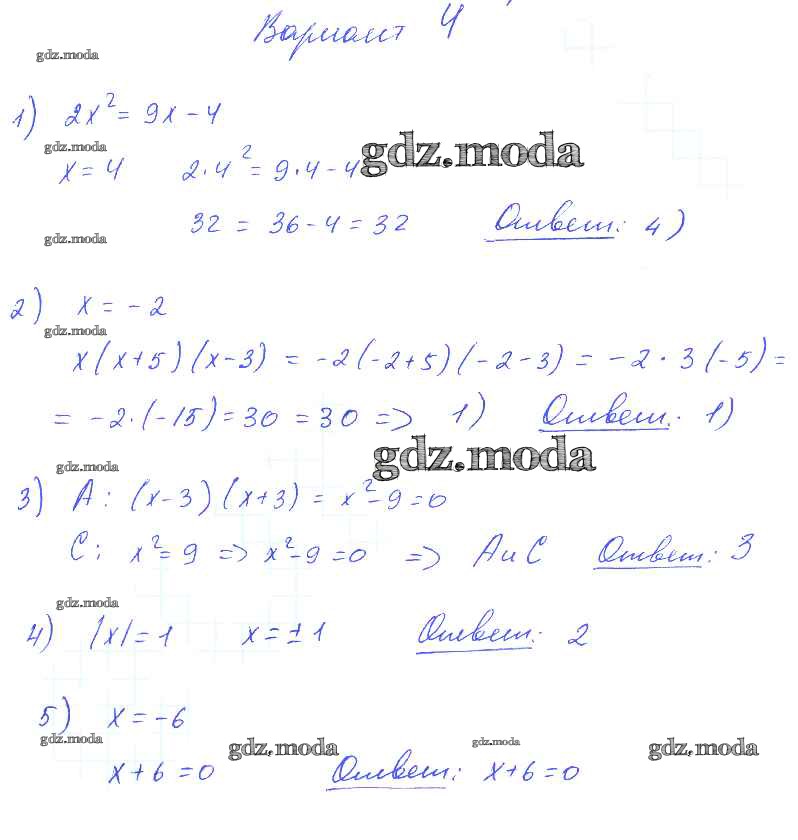 Вариант 4
gdz.moda
1) 2x² = 9x - 4
gdz.moda
gdz.moda
x = 4 2·4² = 9·4 - 4
32 = 36 - 4 = 32 Ответ: 4)
gdz.moda
2) x = -2
gdz.moda
x(x+5)(x-3) = -2(-2+5)(-2-3) = -2·3(-5) =
= -2·(-15) = 30 = 30 => 1) Ответ: 1)
gdz.moda
gdz.moda
3) A: (x-3)(x+3) = x²-9=0
C: x²=9 => x²-9=0 => A и C Ответ: 3
gdz.moda
4) |x|=1 x=±1 Ответ: 2
5) x = -6
gdz.moda
gdz.moda
gdz.moda
gdz.moda
x+6=0 Ответ: x+6=0